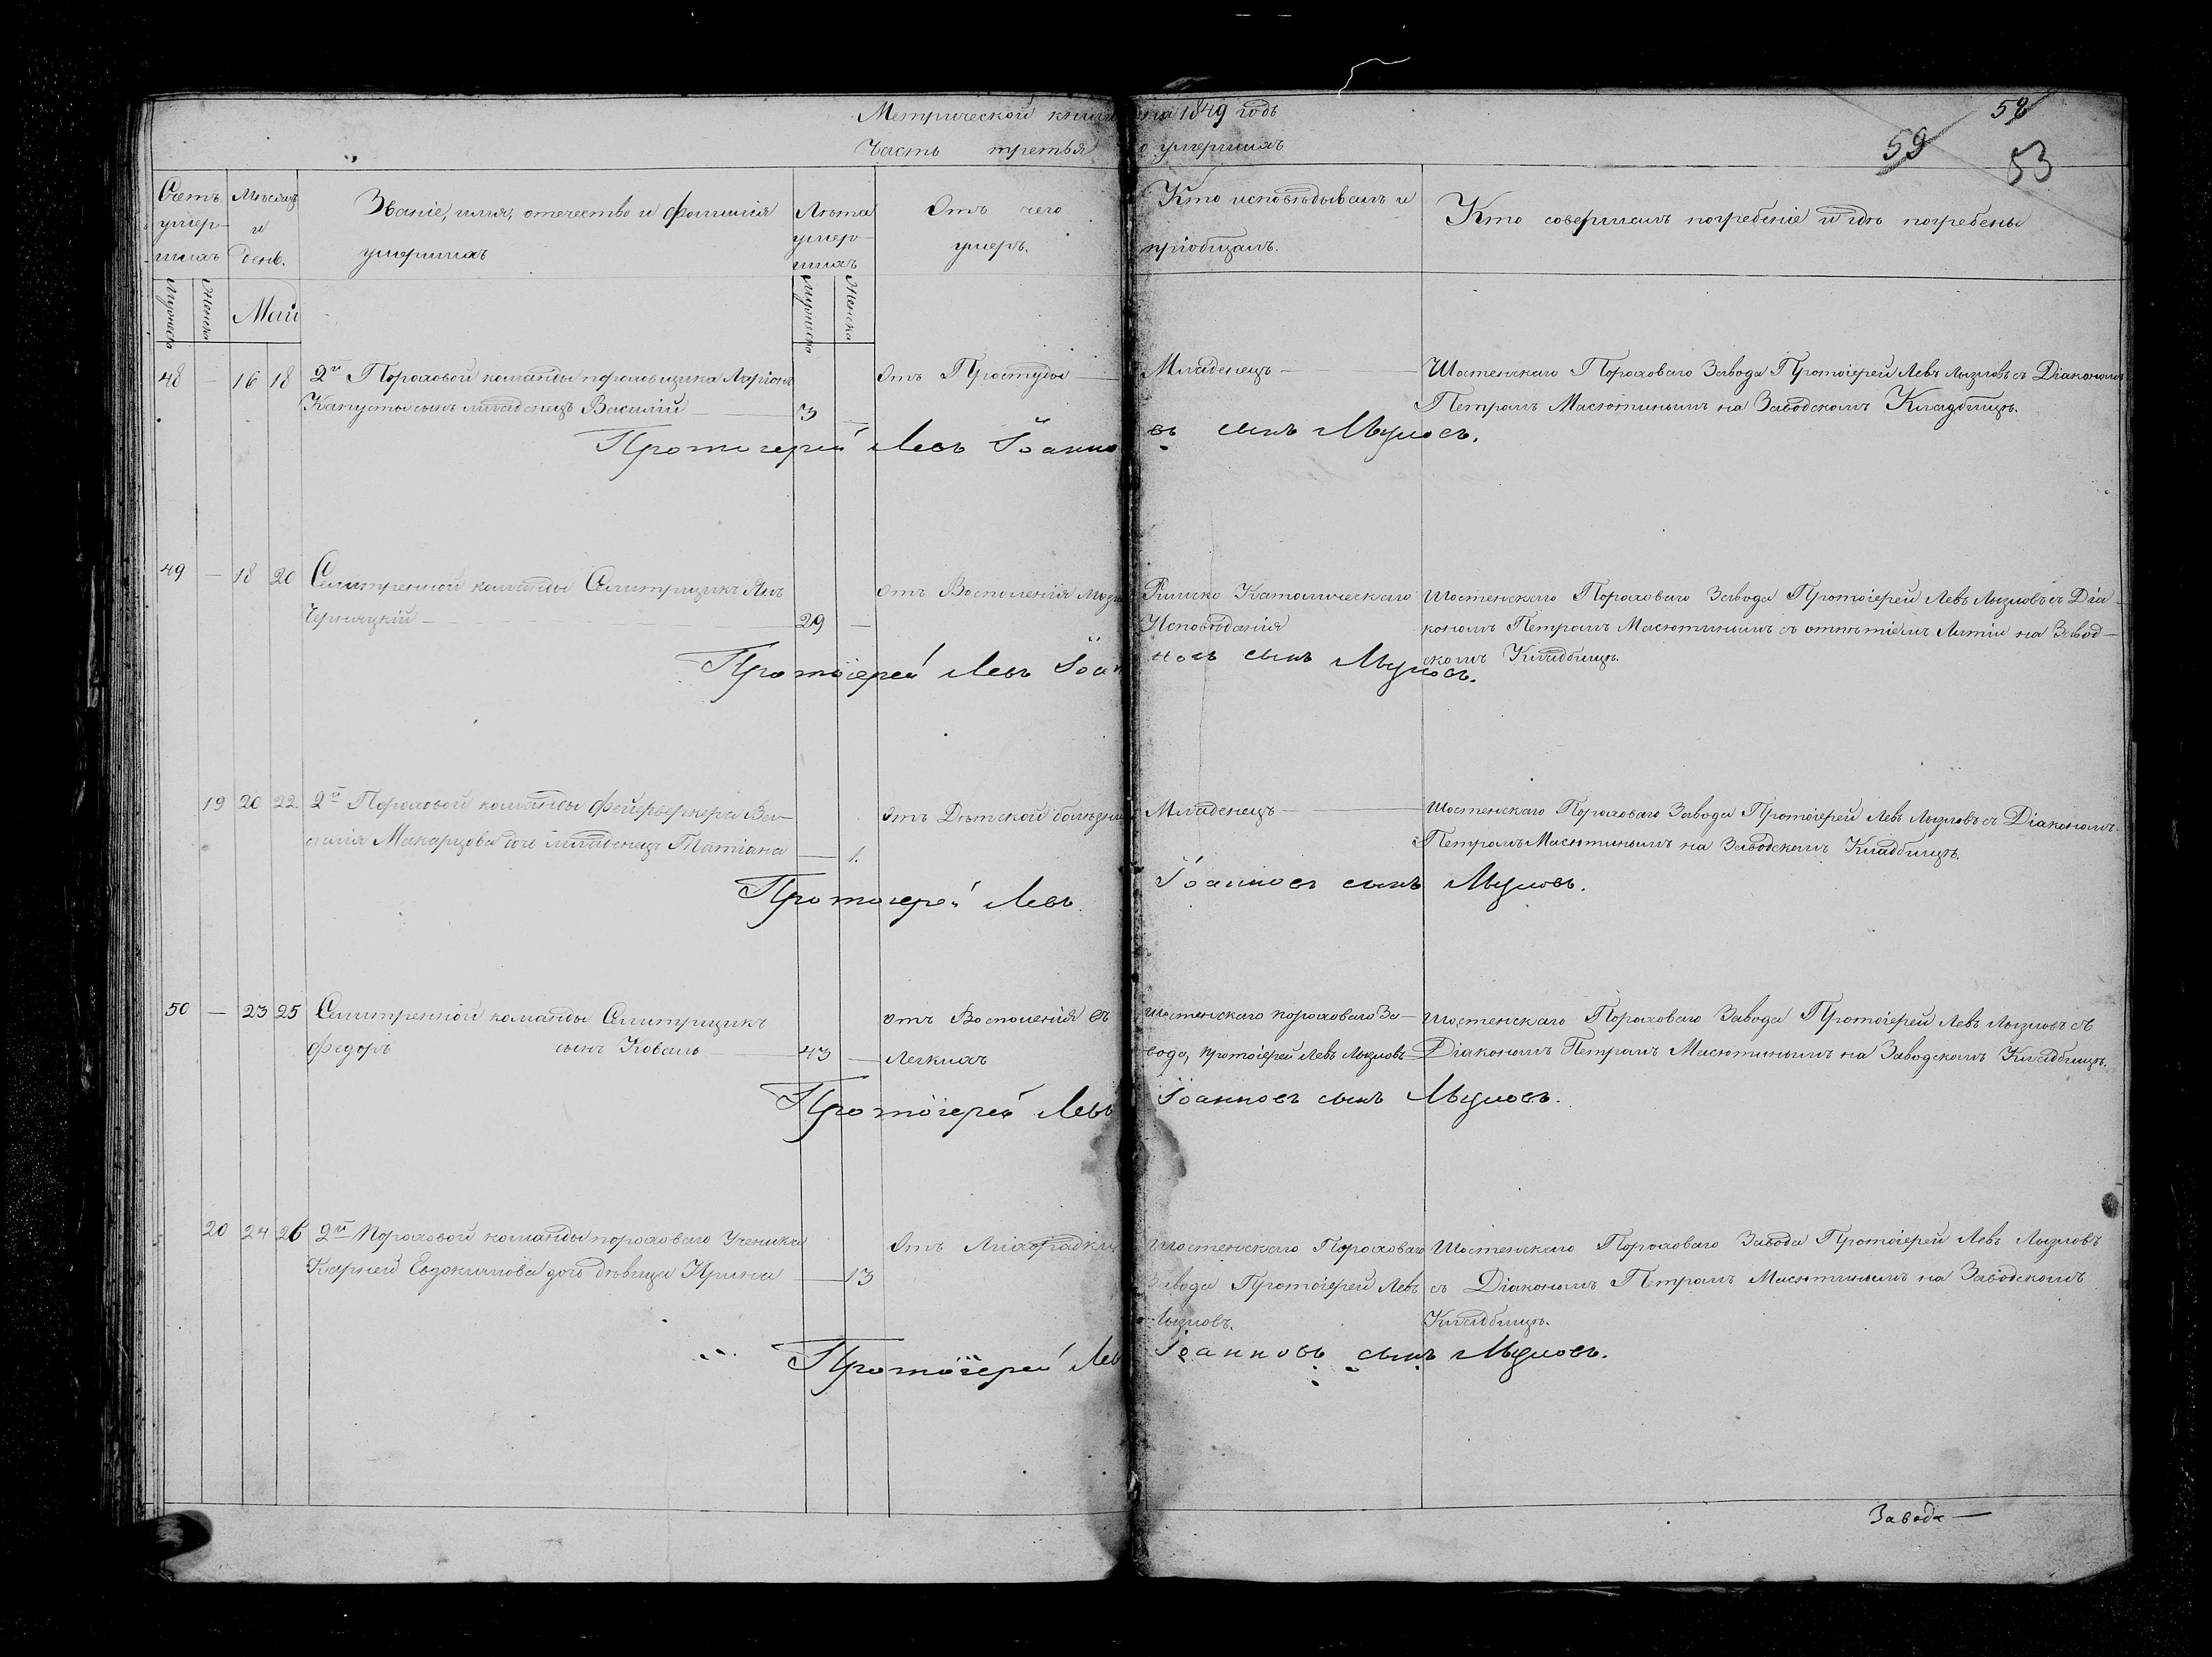 Метрической книги на 1849 годъ
Часть третья о умершихъ
58
59
53
Счетъ умер-шихъ
Мѣсяцъ и день.
Званіе, имя, отечество и фамилія умершихъ
Лѣта умер-шихъ
Отъ чего умеръ.
Кто исповѣдывалъ и пріобщалъ.
Кто совершилъ погребеніе и гдѣ погребены
Мужеска
Женска
Май
Мужеска
Женска
48 — 16 18 2й Пороховой команды пороховщика Ларіона
Капусты сынъ младенецъ Василій — 3 —
Отъ Простуды —
Младенецъ —
Шостенскаго Пороховаго Завода Протоіерей Левъ Лызловъ съ Діакономъ
Петромъ Масютинымъ на Заводскомъ Кладбищѣ.
Протоіерей Левъ Іоанновъ сынъ Лызловъ.
49 — 18 20 Селитренной команды Селитрщикъ Янъ
Черняцкій — 29 —
отъ Воспаленія
Римско Католическаго
Исповѣданія
Шостенскаго Пороховаго Завода Протоіерей Левъ Лызловъ съ Діа-
кономъ Петромъ Масютинымъ съ отпѣтіемъ Литіи на Завод-
скомъ Кладбищѣ.
Протоіерей Левъ Іоанновъ сынъ Лызловъ.
19 20 22 2й Пороховой команды фейерверкера Ва-
силія Макарцова дочь младенецъ Татіана — 1.
отъ Дѣтской болѣзни
Младенецъ —
Шостенскаго Пороховаго Завода Протоіерей Левъ Лызловъ съ Діакономъ
Петромъ Масютинымъ на Заводскомъ Кладбищѣ.
Протоіерей Левъ Іоанновъ сынъ Лызловъ.
50 — 23 25 Селитренной команды Селитрщикъ
Федоръ сынъ Коваль 43 —
отъ Воспаленія въ
Легкихъ
Шостенскаго пороховаго За-
вода, протоіерей Левъ Лызловъ
Шостенскаго Пороховаго Завода Протоіерей Левъ Лызловъ съ
Діакономъ Петромъ Масютинымъ на Заводскомъ Кладбищѣ.
Протоіерей Левъ Іоанновъ сынъ Лызловъ.
20 24 26 2й Пороховой команды пороховаго Ученика
Карнея Евдокимова дочь дѣвица Ирина — 13
Отъ Лихорадки
Шостенскаго Пороховаго
Завода Протоіерей Левъ
Лызловъ.
Шостенскаго Пороховаго Завода Протоіерей Левъ Лызловъ
съ Діакономъ Петромъ Масютинымъ на Заводскомъ
Кладбищѣ.
Протоіерей Левъ Іоанновъ сынъ Лызловъ.
Завода —